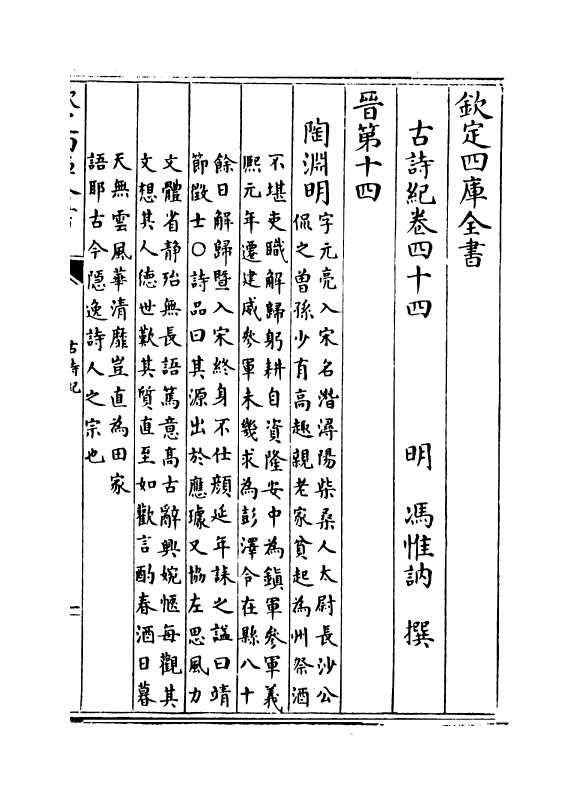 欽定四庫全書
古詩紀卷四十四
明 馮惟訥 撰
晉第十四
陶淵明
字元亮入宋名潛潯陽柴桑人太尉長沙公
侃之曾孫少有高趣親老家貧起為州祭酒
不堪吏職解歸躬耕自資隆安中為鎮軍參軍義
熙元年遷建威參軍未幾求為彭澤令在縣八十
餘日解歸暨入宋終身不仕顔延年誄之諡曰靖
節徵士○詩品曰其源出於應璩又協左思風力
文體省静殆無長語篤意高古辭興婉愜每觀其
文想其人德世歎其質直至如歡言酌春酒日暮
天無雲風華清靡豈直為田家
語耶古今隱逸詩人之宗也
古詩紀